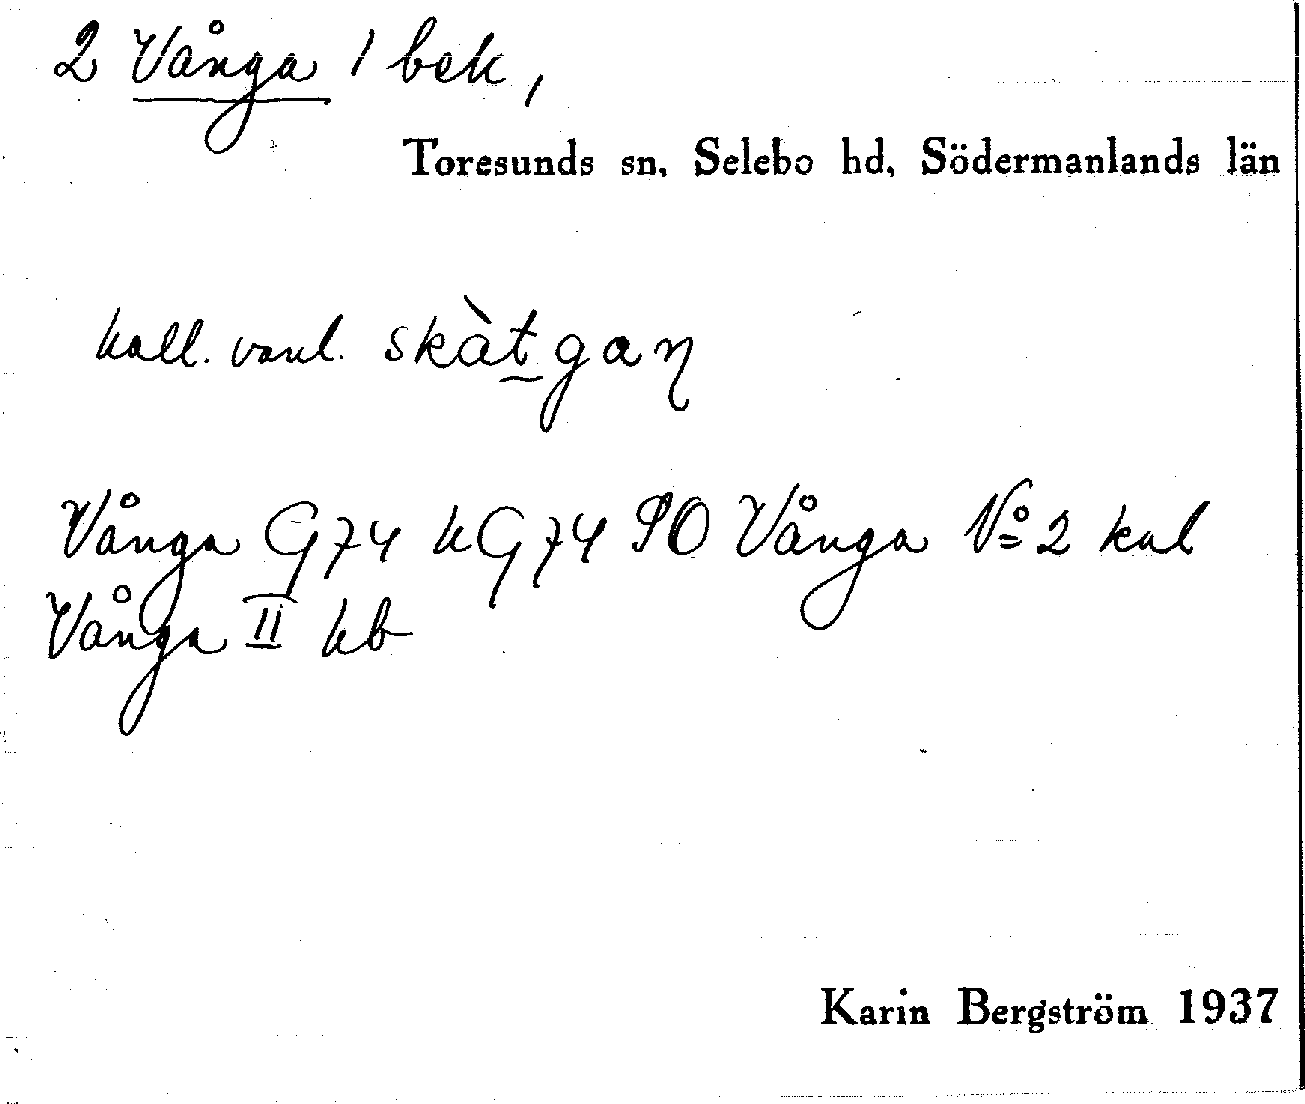 2 Vånga / bek,
Toresunds sn, Selebo hd, Södermanlands län
kall. vanl. skàt̲gaŋ
Vånga G74 kG74 PO Vånga No= 2 kal
Vånga II kb
Karin Bergström 1937